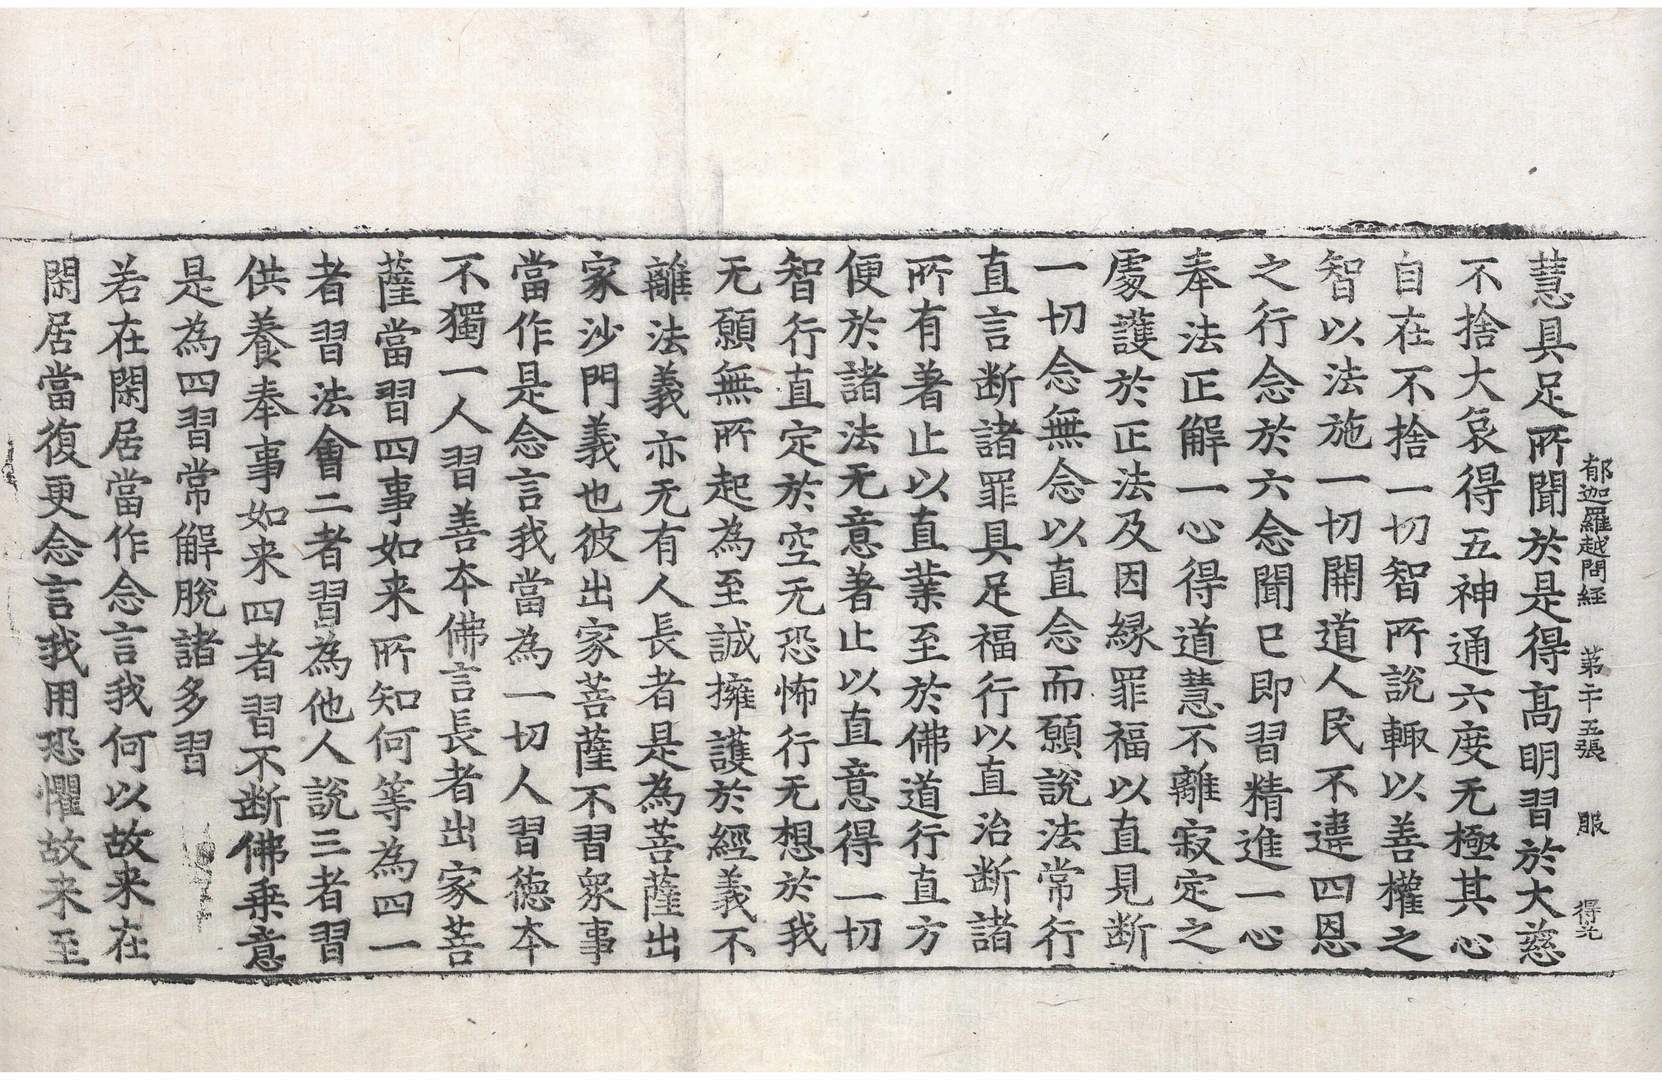 郁迦羅越問経 第二十五張 服 得光
慧具足所聞於是得高明習於大慈
不捨大哀得五神通六度无極其心
自在不捨一切智所說輙以善權之
智以法施一切開道人民不違四恩
之行念於六念聞已即習精進一心
奉法正解一心得道慧不離寂定之
處護於正法及因緣罪福以直見断
一切念無念以直念而願說法常行
直言断諸罪具足福行以直治断諸
所有著止以直業至於佛道行直方
便於諸法无意著止以直意得一切
智行直定於空无恐怖行无想於我
无願無所起為至誠擁護於經義不
離法義亦无有人長者是為菩薩出
家沙門義也彼出家菩薩不習衆事
當作是念言我當為一切人習德本
不獨一人習善本佛言長者出家菩
薩當習四事如来所知何等為四一
者習法會二者習為他人說三者習
供養奉事如来四者習不断佛乗意
是為四習常解脫諸多習
若在閑居當作念言我何以故来在
閑居當復更念言我用恐懼故来至